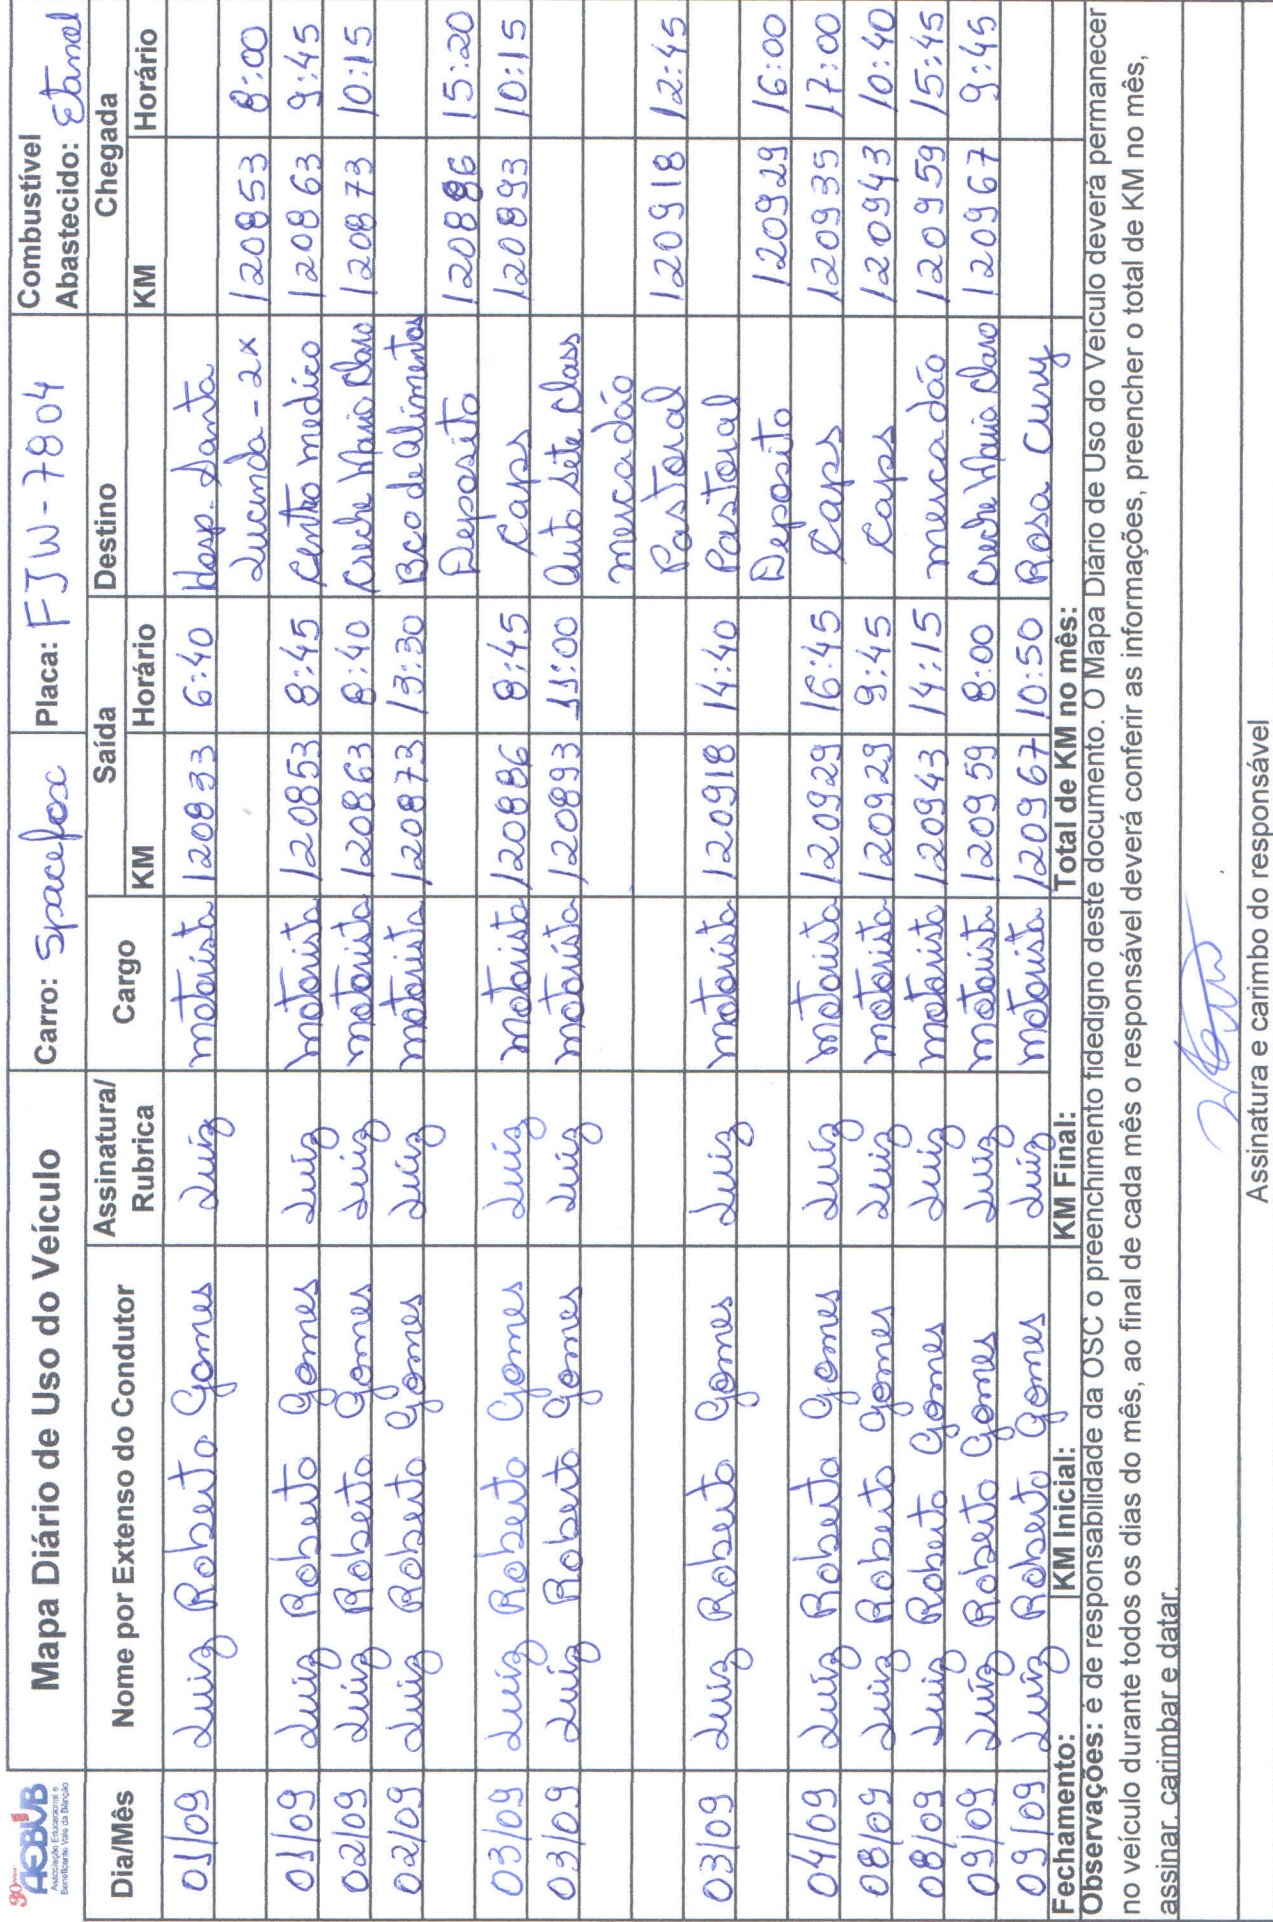 30 anos
AEBVB
Associação Educacional e
Beneficente Vale da Bênção
Mapa Diário de Uso do Veículo Carro: Spacefox Placa: FJW-7804 Combustível Abastecido: Etanol
Dia/Mês Nome por Extenso do Condutor Assinatura/Rubrica Cargo Saída Destino Chegada
KM Horário KM Horário
01/09 Luiz Roberto Gomes Luiz motorista 120833 6:40 Hosp. Santa
Lucinda - 2x 120853 8:00
01/09 Luiz Roberto Gomes Luiz motorista 120853 8:45 Centro medico 120863 9:45
02/09 Luiz Roberto Gomes Luiz motorista 120863 8:40 Creche Maria Claro 120873 10:15
02/09 Luiz Roberto Gomes Luiz motorista 120873 13:30 Bco de Alimentos
Deposito 120886 15:20
03/09 Luiz Roberto Gomes Luiz motorista 120886 8:45 Caps 120893 10:15
03/09 Luiz Roberto Gomes Luiz motorista 120893 11:00 Auto Sete Class
mercadão
Pastoral 120918 12:45
03/09 Luiz Roberto Gomes Luiz motorista 120918 14:40 Pastoral
Deposito 120929 16:00
04/09 Luiz Roberto Gomes Luiz motorista 120929 16:45 Caps 120935 17:00
08/09 Luiz Roberto Gomes Luiz motorista 120929 9:45 Caps 120943 10:40
08/09 Luiz Roberto Gomes Luiz motorista 120943 14:15 mercadão 120959 15:45
09/09 Luiz Roberto Gomes Luiz motorista 120959 8:00 Creche Maria Claro 120967 9:45
09/09 Luiz Roberto Gomes Luiz motorista 120967 10:50 Rosa Cury
Fechamento: KM Inicial: KM Final: Total de KM no mês:
Observações: é de responsabilidade da OSC o preenchimento fidedigno deste documento. O Mapa Diário de Uso do Veículo deverá permanecer
no veículo durante todos os dias do mês, ao final de cada mês o responsável deverá conferir as informações, preencher o total de KM no mês,
assinar, carimbar e datar.
Assinatura e carimbo do responsável